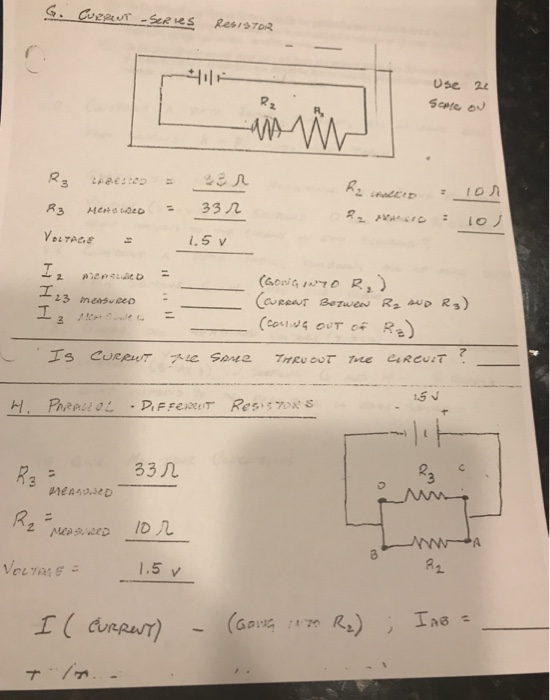 G. CURRENT - SERIES RESISTOR
+
R2
R3
USE 20
SCALE ON
R3 LABELED = 33 Ω
R2 LABELED = 10 Ω
R3 MEASURED = 33 Ω
R2 MEASURED = 10
VOLTAGE = 1.5 V
I2 MEASURED = (GOING INTO R2)
I23 MEASURED = (CURRENT BETWEEN R2 AND R3)
I3 MEASURED = (COMING OUT OF R3)
IS CURRENT THE SAME THRUOUT THE CIRCUIT?
H. PARALLEL - DIFFERENT RESISTORS
1.5 V
- +
R3 = 33 Ω
MEASURED
R3
D C
R2 = 10 Ω
MEASURED
B A
R2
VOLTAGE = 1.5 V
I (CURRENT) - (GOING INTO R2) ; IAB =